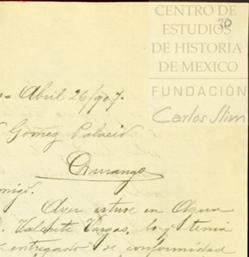 CENTRO DE
ESTUDIOS
DE HISTORIA
DE MEXICO
FUNDACIÓN
Carlos Slim
Abril 26/907.
Gómez Palacio
Durango
migo.
Ayer estuve en
Valente Vargas, lo q tenia
entregado de conformidad